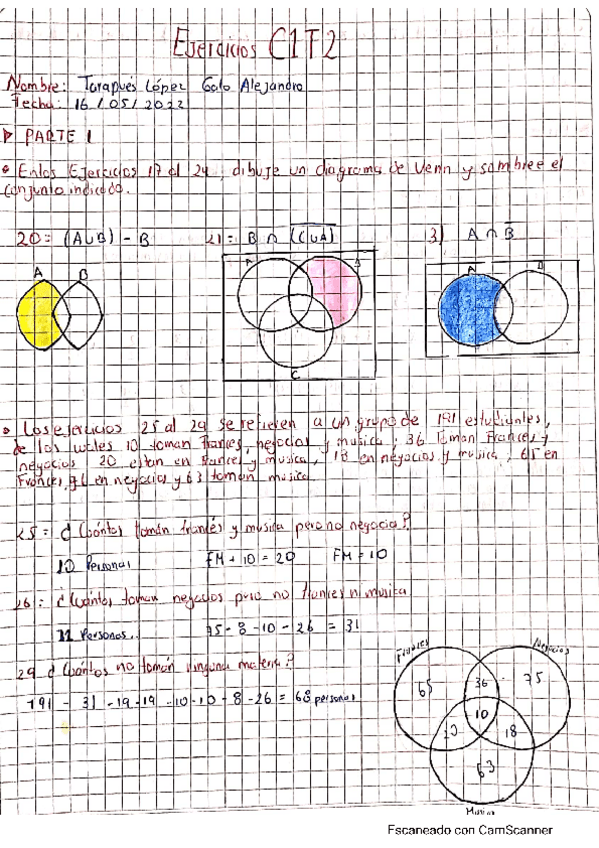 Ejercicios C1T2
Nombre: Tarapués López Galo Alejandro
Fecha: 16/05/2022
PARTE 1
En los Ejercicios 17 al 24, dibuje un diagrama de Venn y sombree el
conjunto indicado.
20= (AUB) - B 21= B ∩ (CUA)‾ 3) A ∩ B̅
A B
A B
C
A B
Los ejercicios 25 al 29 se refieren a un grupo de 191 estudiantes,
de los cuales 10 toman frances, negocios y musica, 36 toman Frances y
negocios 20 estan en frances y musica, 18 en negocios y musica, 65 en
Frances, 76 en negocios y 63 toman musica
25= ¿Cuántos toman francés y musica pero no negocio?
10 Personas FM + 10 = 20 FM = 10
26: ¿Cuántos toman negocios pero no frances ni musica
11 Personas. 75 - 8 - 10 - 26 = 31
29 ¿Cuántos no toman ninguna materia?
191 - 31 - 19 - 19 - 10 - 10 - 8 - 26 = 68 personas
Frances Negocios
65 36 75
10
20 18
63
Musica
Escaneado con CamScanner